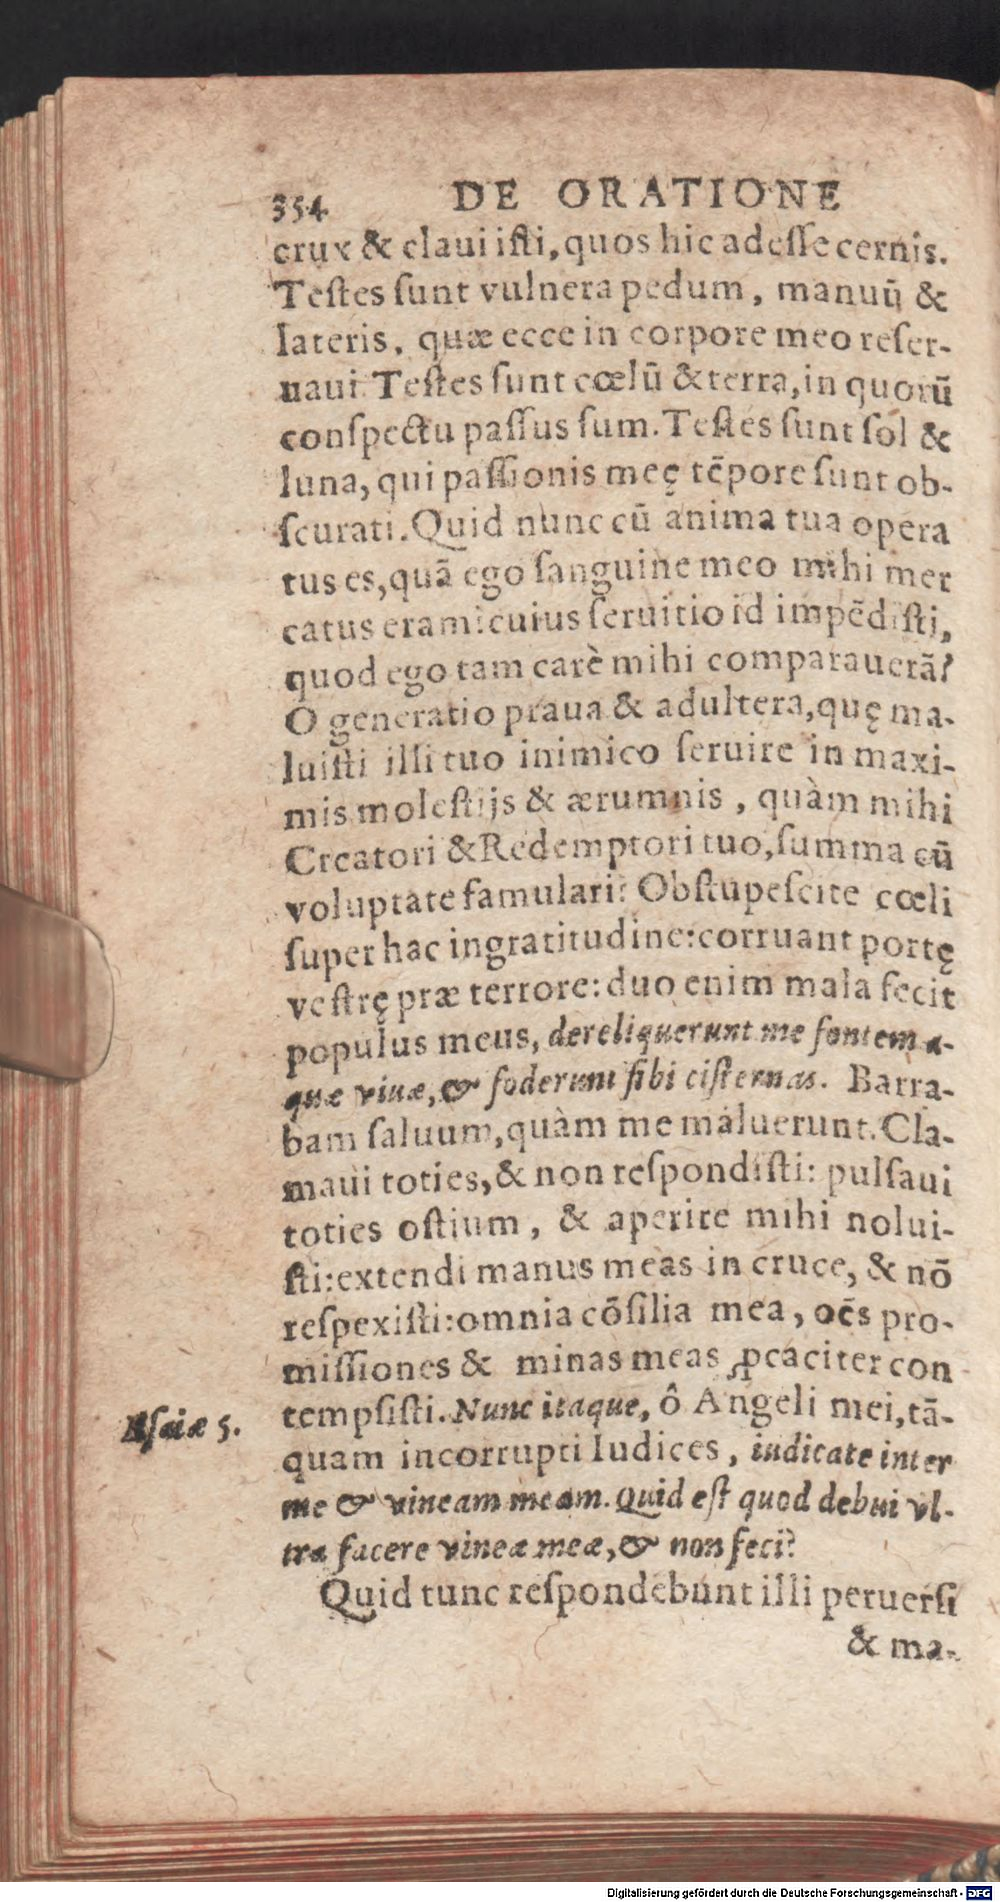 354 DE ORATIONE
crux & claui isti, quos hic adesse cernis.
Testes sunt vulnera pedum, manuū &
lateris, quæ ecce in corpore meo reser-
uaui. Testes sunt cœlū & terra, in quorū
conspectu passus sum. Testes sunt sol &
luna, qui passionis meę tēpore sunt ob-
scurati. Quid nunc cū anima tua opera
tus es, quā ego sanguine meo mihi mer
catus eram: cuius seruitio id impēdisti,
quod ego tam carè mihi comparauerā?
O generatio praua & adultera, quę ma-
luisti illi tuo inimico seruire in maxi-
mis molestijs & ærumnis, quàm mihi
Creatori & Redemptori tuo, summa cū
voluptate famulari: Obstupescite cœli
super hac ingratitudine: corruant portę
vestrę præ terrore: duo enim mala fecit
populus meus, dereliquerunt me fontem a-
quæ viuæ, & foderunt sibi cisternas. Barra-
bam saluum, quàm me maluerunt. Cla-
maui toties, & non respondisti: pulsaui
toties ostium, & aperire mihi nolui-
sti: extendi manus meas in cruce, & nō
respexisti: omnia cōsilia mea, oēs pro-
missiones & minas meas ꝓcaciter con
tempsisti. Nunc itaque, ô Angeli mei, tā-
Esaiæ 5.
quam incorrupti Iudices, iudicate inter
me & vineam meam. Quid est quod debui vl-
tra facere vineæ meæ, & non feci?
Quid tunc respondebunt illi peruersi
& ma-
Digitalisierung gefördert durch die Deutsche Forschungsgemeinschaft - DFG